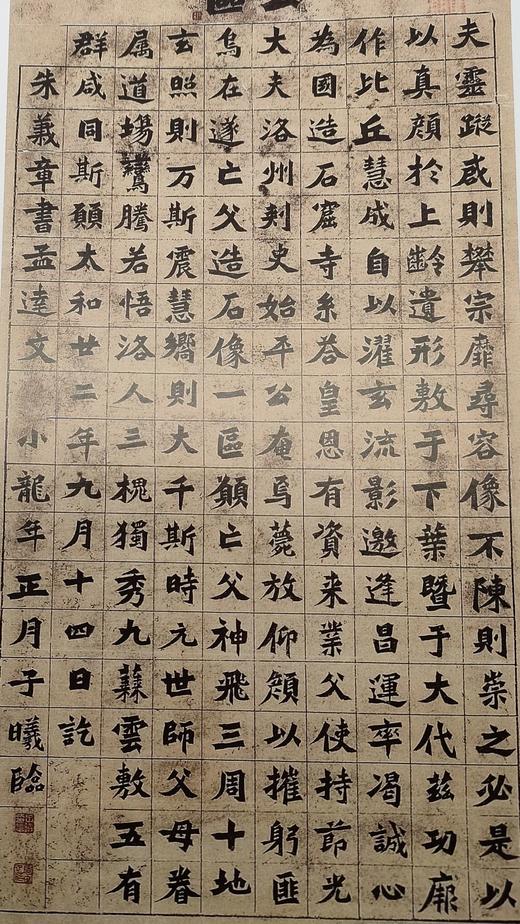 夫靈蹤戚則攀宗靡尋容像不陳則崇之必是以
以真顏於上齡遺形敷于下葉暨于大代茲功厥
作比丘慧成自以濯玄流影邀逢昌運率渴誠心
為國造石窟寺糸荅皇恩有資来業父使持節光
大夫洛州刾史始平公奄焉薨放仰顏以摧躬匪
烏在遂亡父造石像一區顚亡父神飛三周十地
玄照則万斯震慧嚮則大千斯時元世師父母眷
属道場鸞騰若悟洛人三槐獨秀九蕀雲敷五有
群咸同斯顚太和廿二年九月十四日訖
朱義章書孟達文 小龍年正月子曦臨